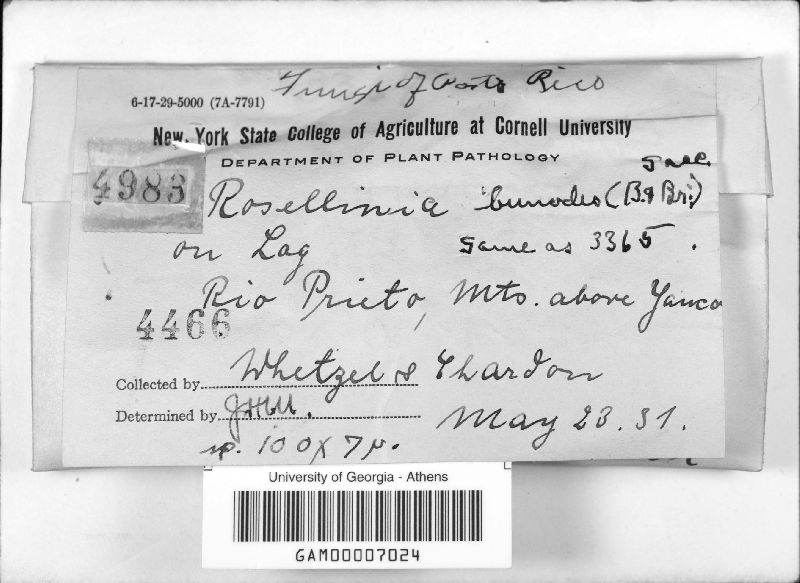 Fungi of Porto Rico
6-17-29-5000 (7A-7791)
New York State College of Agriculture at Cornell University
DEPARTMENT OF PLANT PATHOLOGY
4983
Sacc.
Rosellinia bunodes (B. & Br.)
on Log same as 3365.
Rio Prieto, Mts. above Yauco
4466
Collected by Whetzel & Chardon
Determined by JHM.
May 23. 31.
sp. 100 x 7 µ.
University of Georgia - Athens
GAM00007024